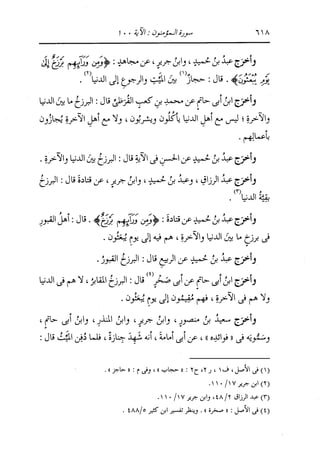 ٦١٨
سورة المؤمنون : الآية ١٠٠
وأخرَج عبدُ بنُ حُميدٍ ، وابنُ جريرٍ ، عن مجاهدٍ : ﴿وَمِن وَرَآئِهِم بَرْزَخٌ إِلَىٰ
يَوْمِ يُبْعَثُونَ﴾ . قال : حجازٌ(١) بينَ الميِّتِ والرجوعِ إلى الدنيا(٢) .
وأخرَج ابنُ أبى حاتمٍ عن محمدِ بنِ كعبٍ القُرَظيِّ قال : البرزخُ ما بينَ الدنيا
والآخرةِ ؛ ليس مع أهلِ الدنيا يأكُلون ويشرَبون ، ولا مع أهلِ الآخرةِ يُجازَون
بأعمالِهم .
وأخرَج عبدُ بنُ حُميدٍ عن الحسنِ فى الآيةِ قال : البرزخُ بينَ الدنيا والآخرةِ .
وأخرَج عبدُ الرزاقِ ، وعبدُ بنُ حُميدٍ ، وابنُ جريرٍ ، عن قتادةَ قال : البرزخُ
بقيَّةُ الدنيا(٣) .
وأخرَج عبدُ بنُ حُميدٍ عن قتادةَ : ﴿وَمِن وَرَآئِهِم بَرْزَخٌ﴾ . قال : أهلُ القبورِ
فى برزخٍ ما بينَ الدنيا والآخرةِ ، هم فيه إلى يومِ يُبعَثون .
وأخرَج عبدُ بنُ حُميدٍ عن الربيعِ قال : البرزخُ القبورُ .
وأخرَج ابنُ أبى حاتمٍ عن أبى صَخْرٍ(٤) قال : البرزخُ المقابرُ ، لا هم فى الدنيا
ولا هم فى الآخرةِ ، فهم مُقِيمون إلى يومِ يُبعَثون .
وأخرَج سعيدُ بنُ منصورٍ ، وابنُ جريرٍ ، وابنُ المنذرِ ، وابنُ أبى حاتمٍ ،
وسَمُّويَه فى « فوائدِه » ، عن أبى أمامةَ ، أنه شَهِدَ جنازةً ، فلما دُفِن الميِّتُ قال :
(١) فى الأصل ، ف١ ، ر٢ ، ح٢ : « حجاب » ، وفى م : « حاجز » .
(٢) ابن جرير ١٧/ ١١٠ .
(٣) عبد الرزاق ٢/ ٤٨ ، وابن جرير ١٧/ ١١٠ .
(٤) فى الأصل : « صخرة » . وينظر تفسير ابن كثير ٥/ ٤٨٨ .